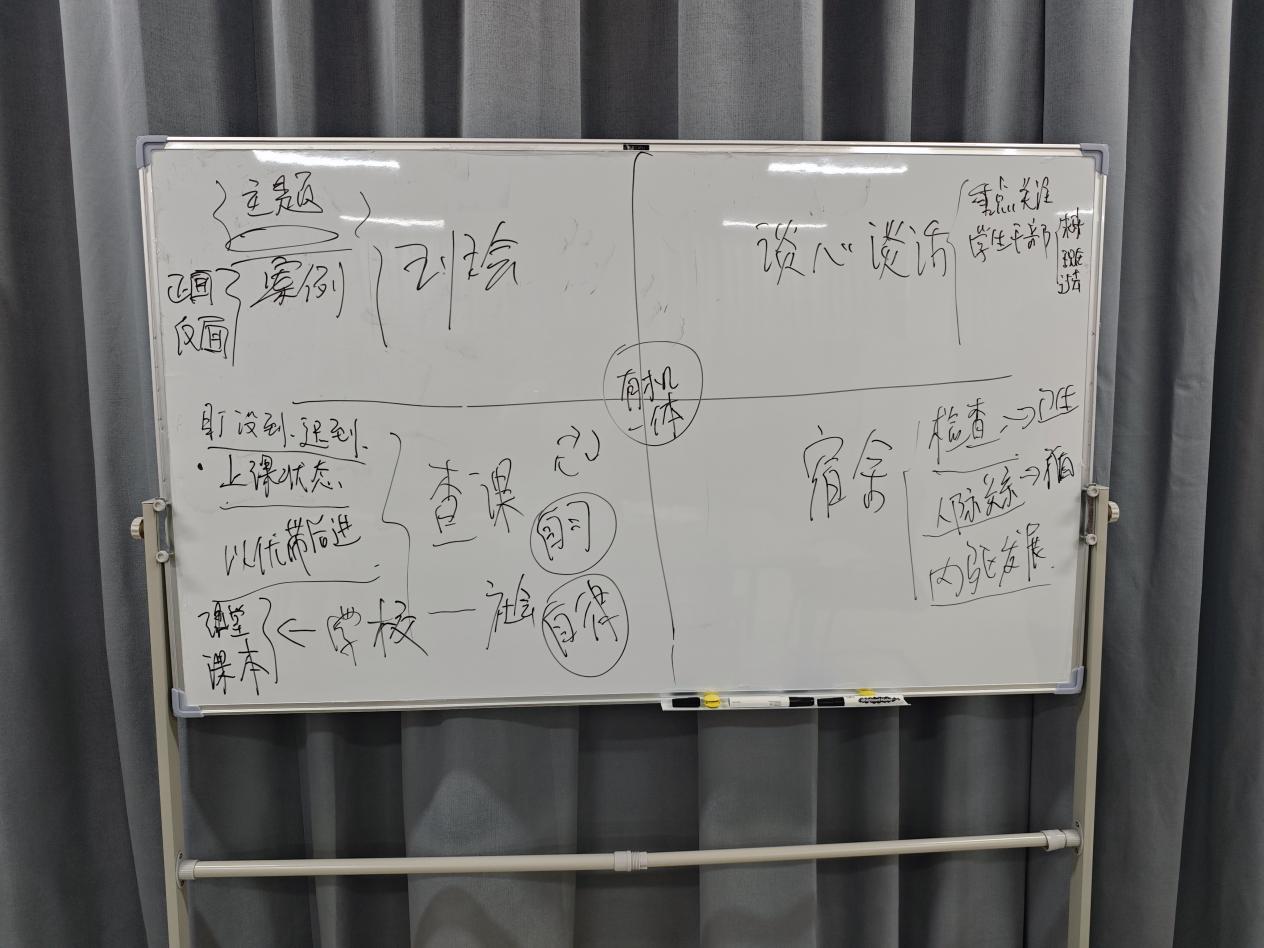 主题
案例
正面
反面
班会
谈心谈话
重点关注
学生干部
有机
一体
没到、迟到、
上课状态、
以优带后进
查课
心
自习
自律
学校 — 社会
课堂
课本
宿舍
检查 → 卫生
人际关系 →
内驱发展